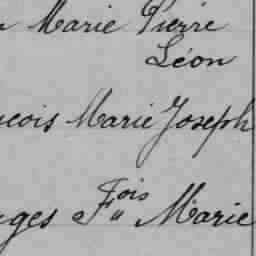 Marie Pierre
Léon
ncois Marie Joseph
ges Fois Marie